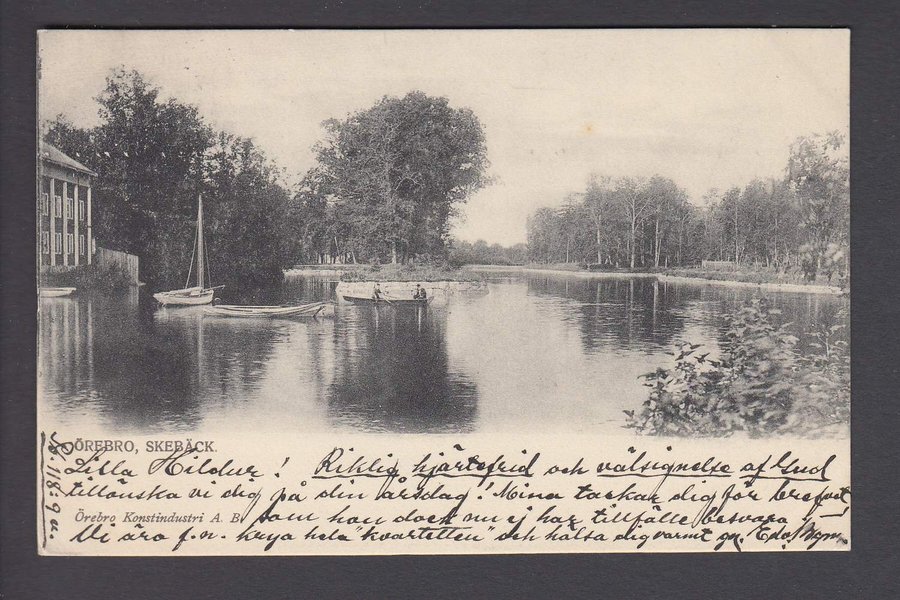 ÖREBRO, SKEBÄCK.
Lilla Hildur! Riklig hjärtefrid och välsignelse af Gud
tillönska vi dig på din årsdag! Mina tackar dig för brefvet
Örebro Konstindustri A. B.
som hon dock nu ej har tillfälle besvara
Vi äro f.n. krya hela "kvartetten" och hälsa dig varmt